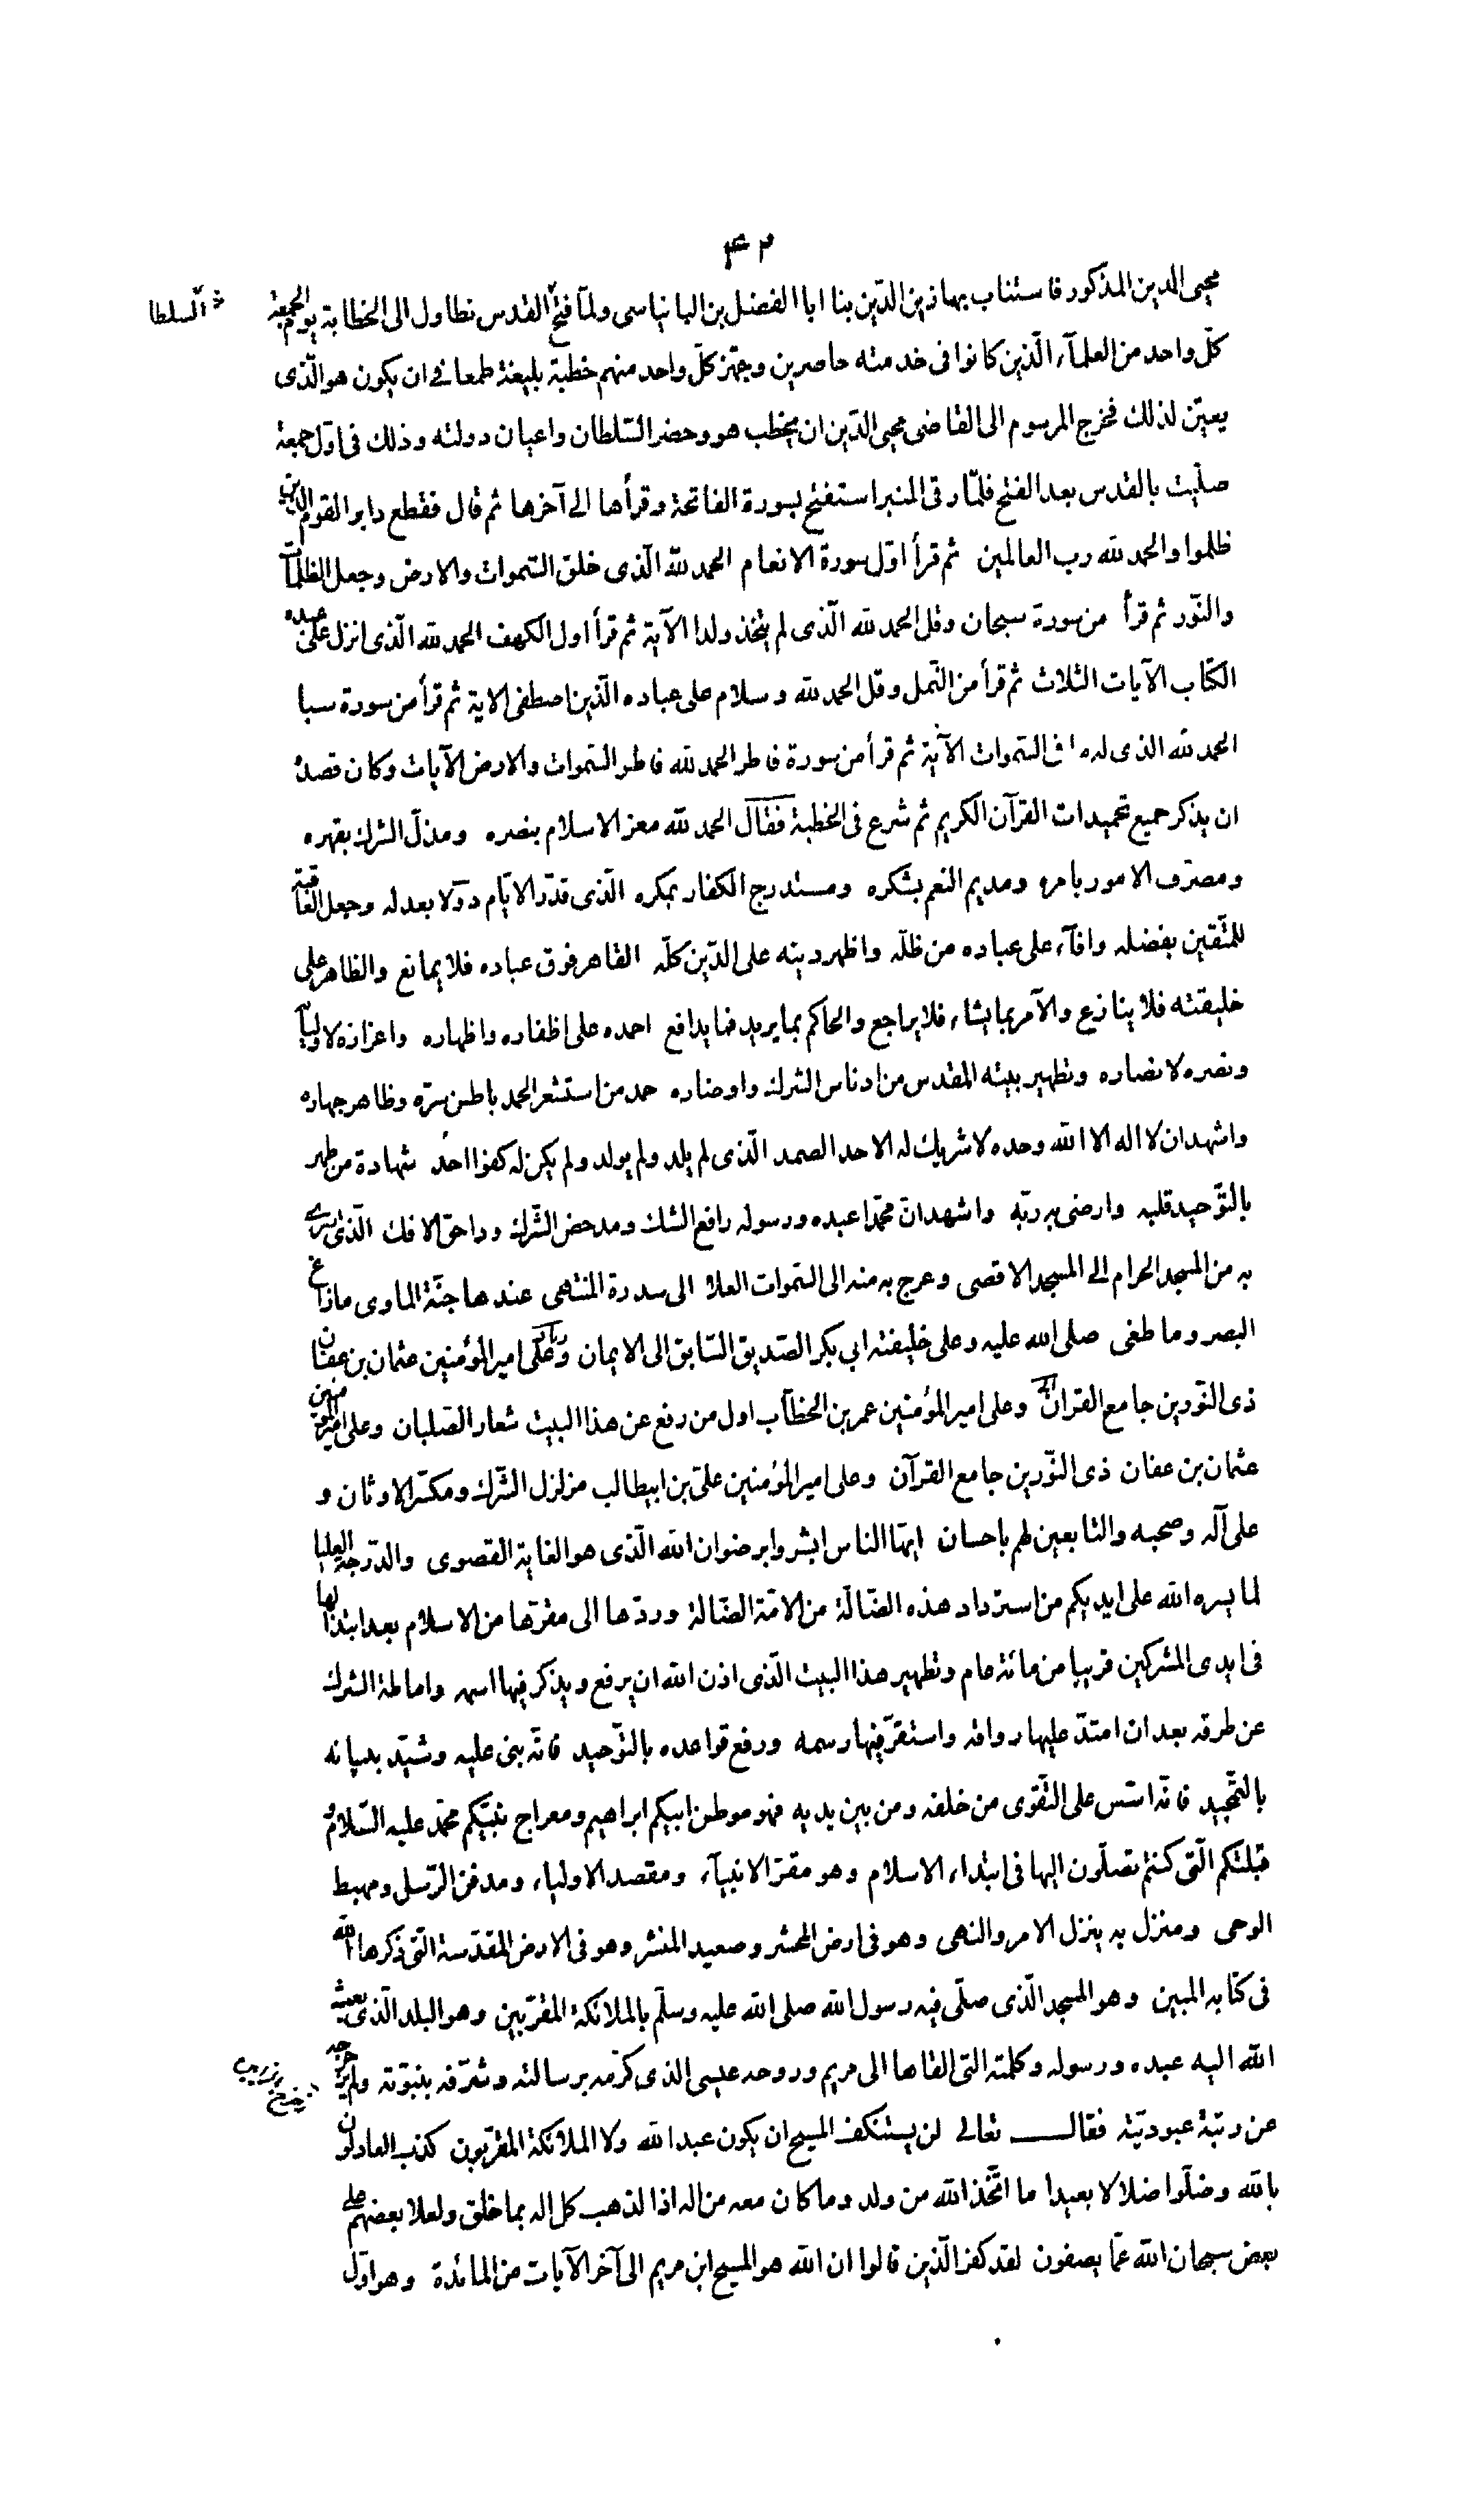 ٤٢
محيى الدين المذكور فاستناب بها زين الدّين بنا ابا الفضل بن البانياسى ولمّا فتح القدس تطاول الى الخطابة يوم الجمعة
السلطا
كلّ واحد من العلمآء الّذين كانوا فى خدمته حاصرين وجهّز كلّ واحد منهم خطبة بليغة طمعا فى ان يكون هو الّذى
يعيّن لذلك فخرج المرسوم الى القاضى محيى الدّين ان يخطب هو وحضر السّلطان واعيان دولته وذلك فى اوّل جمعة
صلّيت بالقدس بعد الفتح فلمّا رقى المنبر استفتح بسورة الفاتحة وقرأها الى آخرها ثم قال فقطع دابر القوم الذين
ظلموا والحمد لله رب العالمين ثم قرأ اوّل سورة الانعام الحمد لله الّذى خلق السّموات والارض وجعل الظلمات
والنّور ثم قرأ من سورة سبحان وقل الحمد لله الّذى لم يتخذ ولدا الآية ثم قرأ اول الكهف الحمد لله الّذى انزل على عبده
الكتاب الآيات الثلاث ثم قرأ من النّمل وقل الحمد لله وسلام على عباده الّذين اصطفى الاية ثم قرأ من سورة سبا
الحمد لله الذى له ما فى السّموات الآية ثم قرأ من سورة فاطر الحمد لله فاطر السّموات والارض الآيات وكان قصدهُ
ان يذكر جميع تحميدات القرآن الكريم ثم شرع فى الخطبة فقال الحمد لله معز الاسلام بنصره ومذلّ الشرك بقهره
ومصرّف الامور بامره ومديم النعم بشكره ومستدرج الكفار بمكره الّذى قدّر الايّام دولا بعدله وجعل العاقبة
للمتّقين بفضله وافآء على عباده من ظلّه واظهر دينه على الدّين كلّه القاهر فوق عباده فلا يمانع والظاهر على
خليقته فلا ينازع والآمر بما يشاء فلا يراجع والحاكم بما يريد فما يدافع احمده على اظفاره واظهاره واعزازه لاوليآئه
ونصره لانصاره وتطهير بيته المقدس من ادناس الشرك واوضاره حمد من استشعر الحمد باطن سرّه وظاهر جهاره
واشهد ان لا اله الا الله وحده لا شريك له الاحد الصمد الّذى لم يلد ولم يولد ولم يكن له كفوا احد شهادة من طهر
بالتّوحيد قلبه وارضى به ربّه واشهد انّ محمّدا عبده ورسوله رافع الشك ومدحض الشّرك وداحق الافك الّذى اسرى
به من المسجد الحرام الى المسجد الاقصى وعرج به منه الى السّموات العلا الى سدرة المنتهى عندها جنّة الماوى ما زاغ
البصر وما طغى صلى الله عليه وعلى خليفته ابي بكر الصّديق السّابق الى الايمان وعلى امير المؤمنين عثمان بن عفان
ذى النّورين جامع القران وعلى امير المؤمنين عمر بن الخطّاب اول من رفع عن هذا البيت شعار الصّلبان وعلى امير المؤمنين
عثمان بن عفان ذى النّورين جامع القرآن وعلى امير المؤمنين علىّ بن ابيطالب مزلزل الشّرك ومكسّر الاوثان و
على آله وصحبه والتابعين لهم باحسان ايّها الناس ابشروا برضوان الله الّذى هو الغاية القصوى والدّرجة العليا
لما يسره الله على ايديكم من استرداد هذه الضّالّة من الامّة الضّالة وردّها الى مقرّها من الاسلام بعد ابتذالها
فى ايدى المشركين قريبا من مائة عام وتطهير هذا البيت الّذى اذن الله ان يرفع ويذكر فيها اسمه واماطة الشرك
عن طرقه بعد ان امتدّ عليها رواقه واستقرّ فيها رسمه ورفع قواعده بالتّوحيد فانّه بنى عليه وشيّد بنيانه
بالتّحيد فانّه اسّس على التّقوى من خلفه ومن بين يديه فهو موطن ابيكم ابراهيم ومعراج نبيّكم محمّد عليه السّلامُ
قبلتكم الّتى كنتم تصلّون اليها فى ابتداء الاسلام وهو مقرّ الانبيآء ومقصد الاولياء ومدفن الرّسل ومهبط
الوحى ومنزل به ينزل الامر والنهى وهو فى ارض المحشر وصعيد المنشر وهو فى الارض المقدّسة الّتى ذكرها الله
فى كتابه المبين وهو المسجد الّذى صلّى فيه رسول الله صلى الله عليه وسلّم بالملائكة المقرّبين وهو البلد الّذى بعث
الله اليه عبده ورسوله وكلمته التى القاها الى مريم وروحه عيسى الذى كرّمه برسالته وشرّفه بنبوّته ولم يزحزحه
عن رتبة عبوديّته فقال تعالى لن يستنكف المسيح ان يكون عبدا لله ولا الملائكة المقرّبون كذب العادلون
بالله وضلّوا ضلالا بعيدا ما اتّخذ الله من ولد وما كان معه من اله اذا لذهب كل اله بما خلق ولعلا بعضهم على
بعض سبحان الله عمّا يصفون لقد كفر الّذين قالوا ان الله هو المسيح ابن مريم الى آخر الآيات من المائدة وهو اوّل